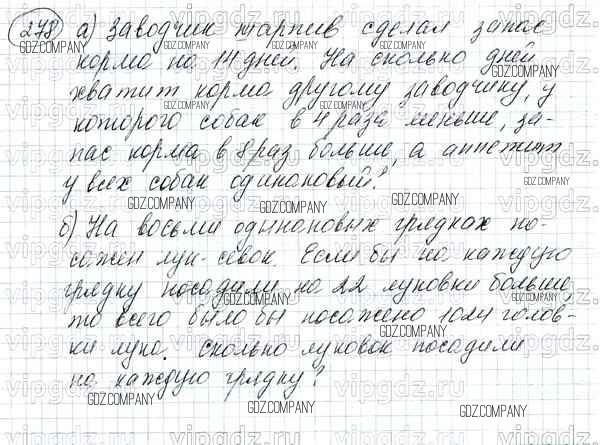 278 а) Заводчик такс сделал запас
корма на 14 дней. На сколько дней
хватит корма другому заводчику, у
которого собак в 4 раза меньше, за-
пас корма в 8 раз больше, а аппетит
у всех собак одинаковый?
б) На восьми одинаковых грядках по-
сажен лук-севок. Если бы на каждую
грядку посадили на 22 луковки больше,
то всего было бы посажено 1024 голов-
ки лука. Сколько луковок посадили
на каждую грядку?